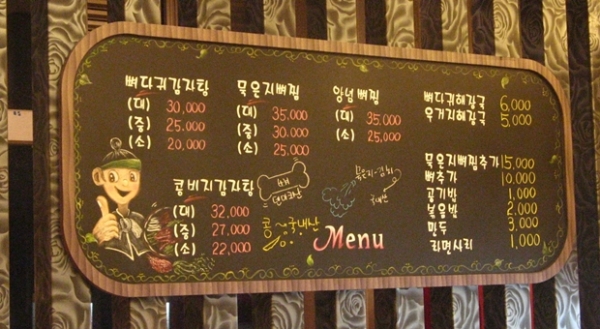 뼈다귀감자탕
(대) 30,000
(중) 25.000
(소) 20,000
묵은지뼈찜
(대) 35,000
(중) 30,000
(소) 25,000
양념뼈찜
(대) 35,000
(소) 25,000
뼈다귀해장국 6,000
우거지해장국 5,000
콩비지감자탕
(대) 32,000
(중) 27,000
(소) 22,000
묵은지-김치
국내산
콩-국내산
Menu
묵은지뼈찜추가 15,000
뼈추가 10,000
공기밥 1,000
볶음밥 2,000
만두 3,000
라면사리 1,000